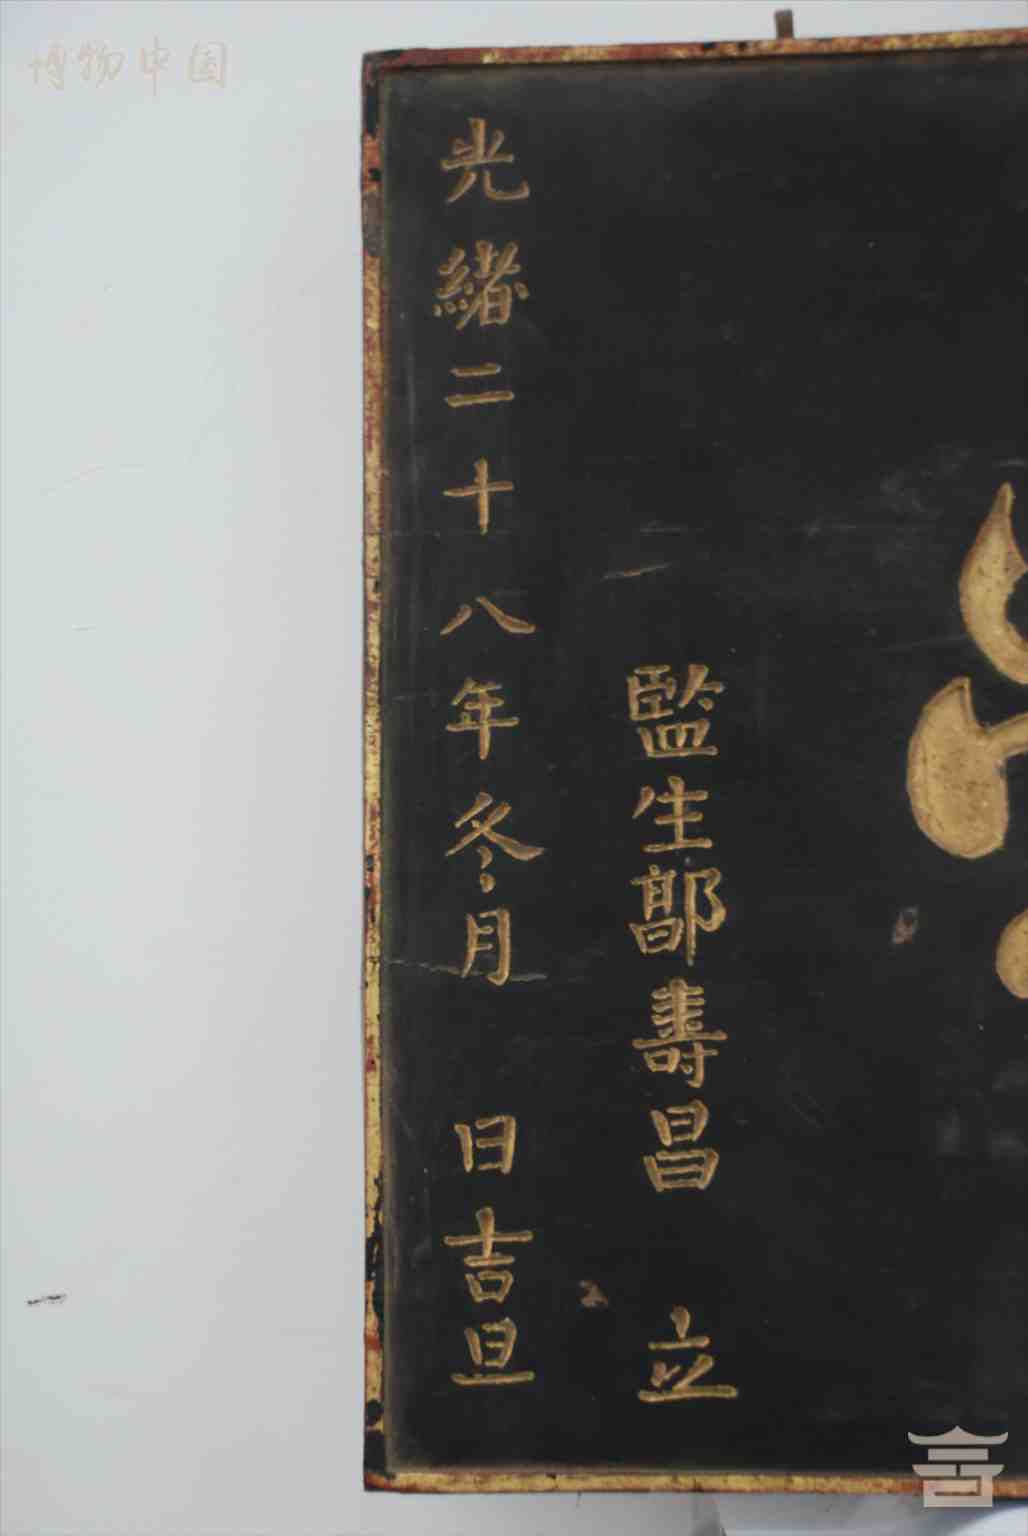 博物中国
監生壽昌 立
光緒二十八年冬月 日吉旦